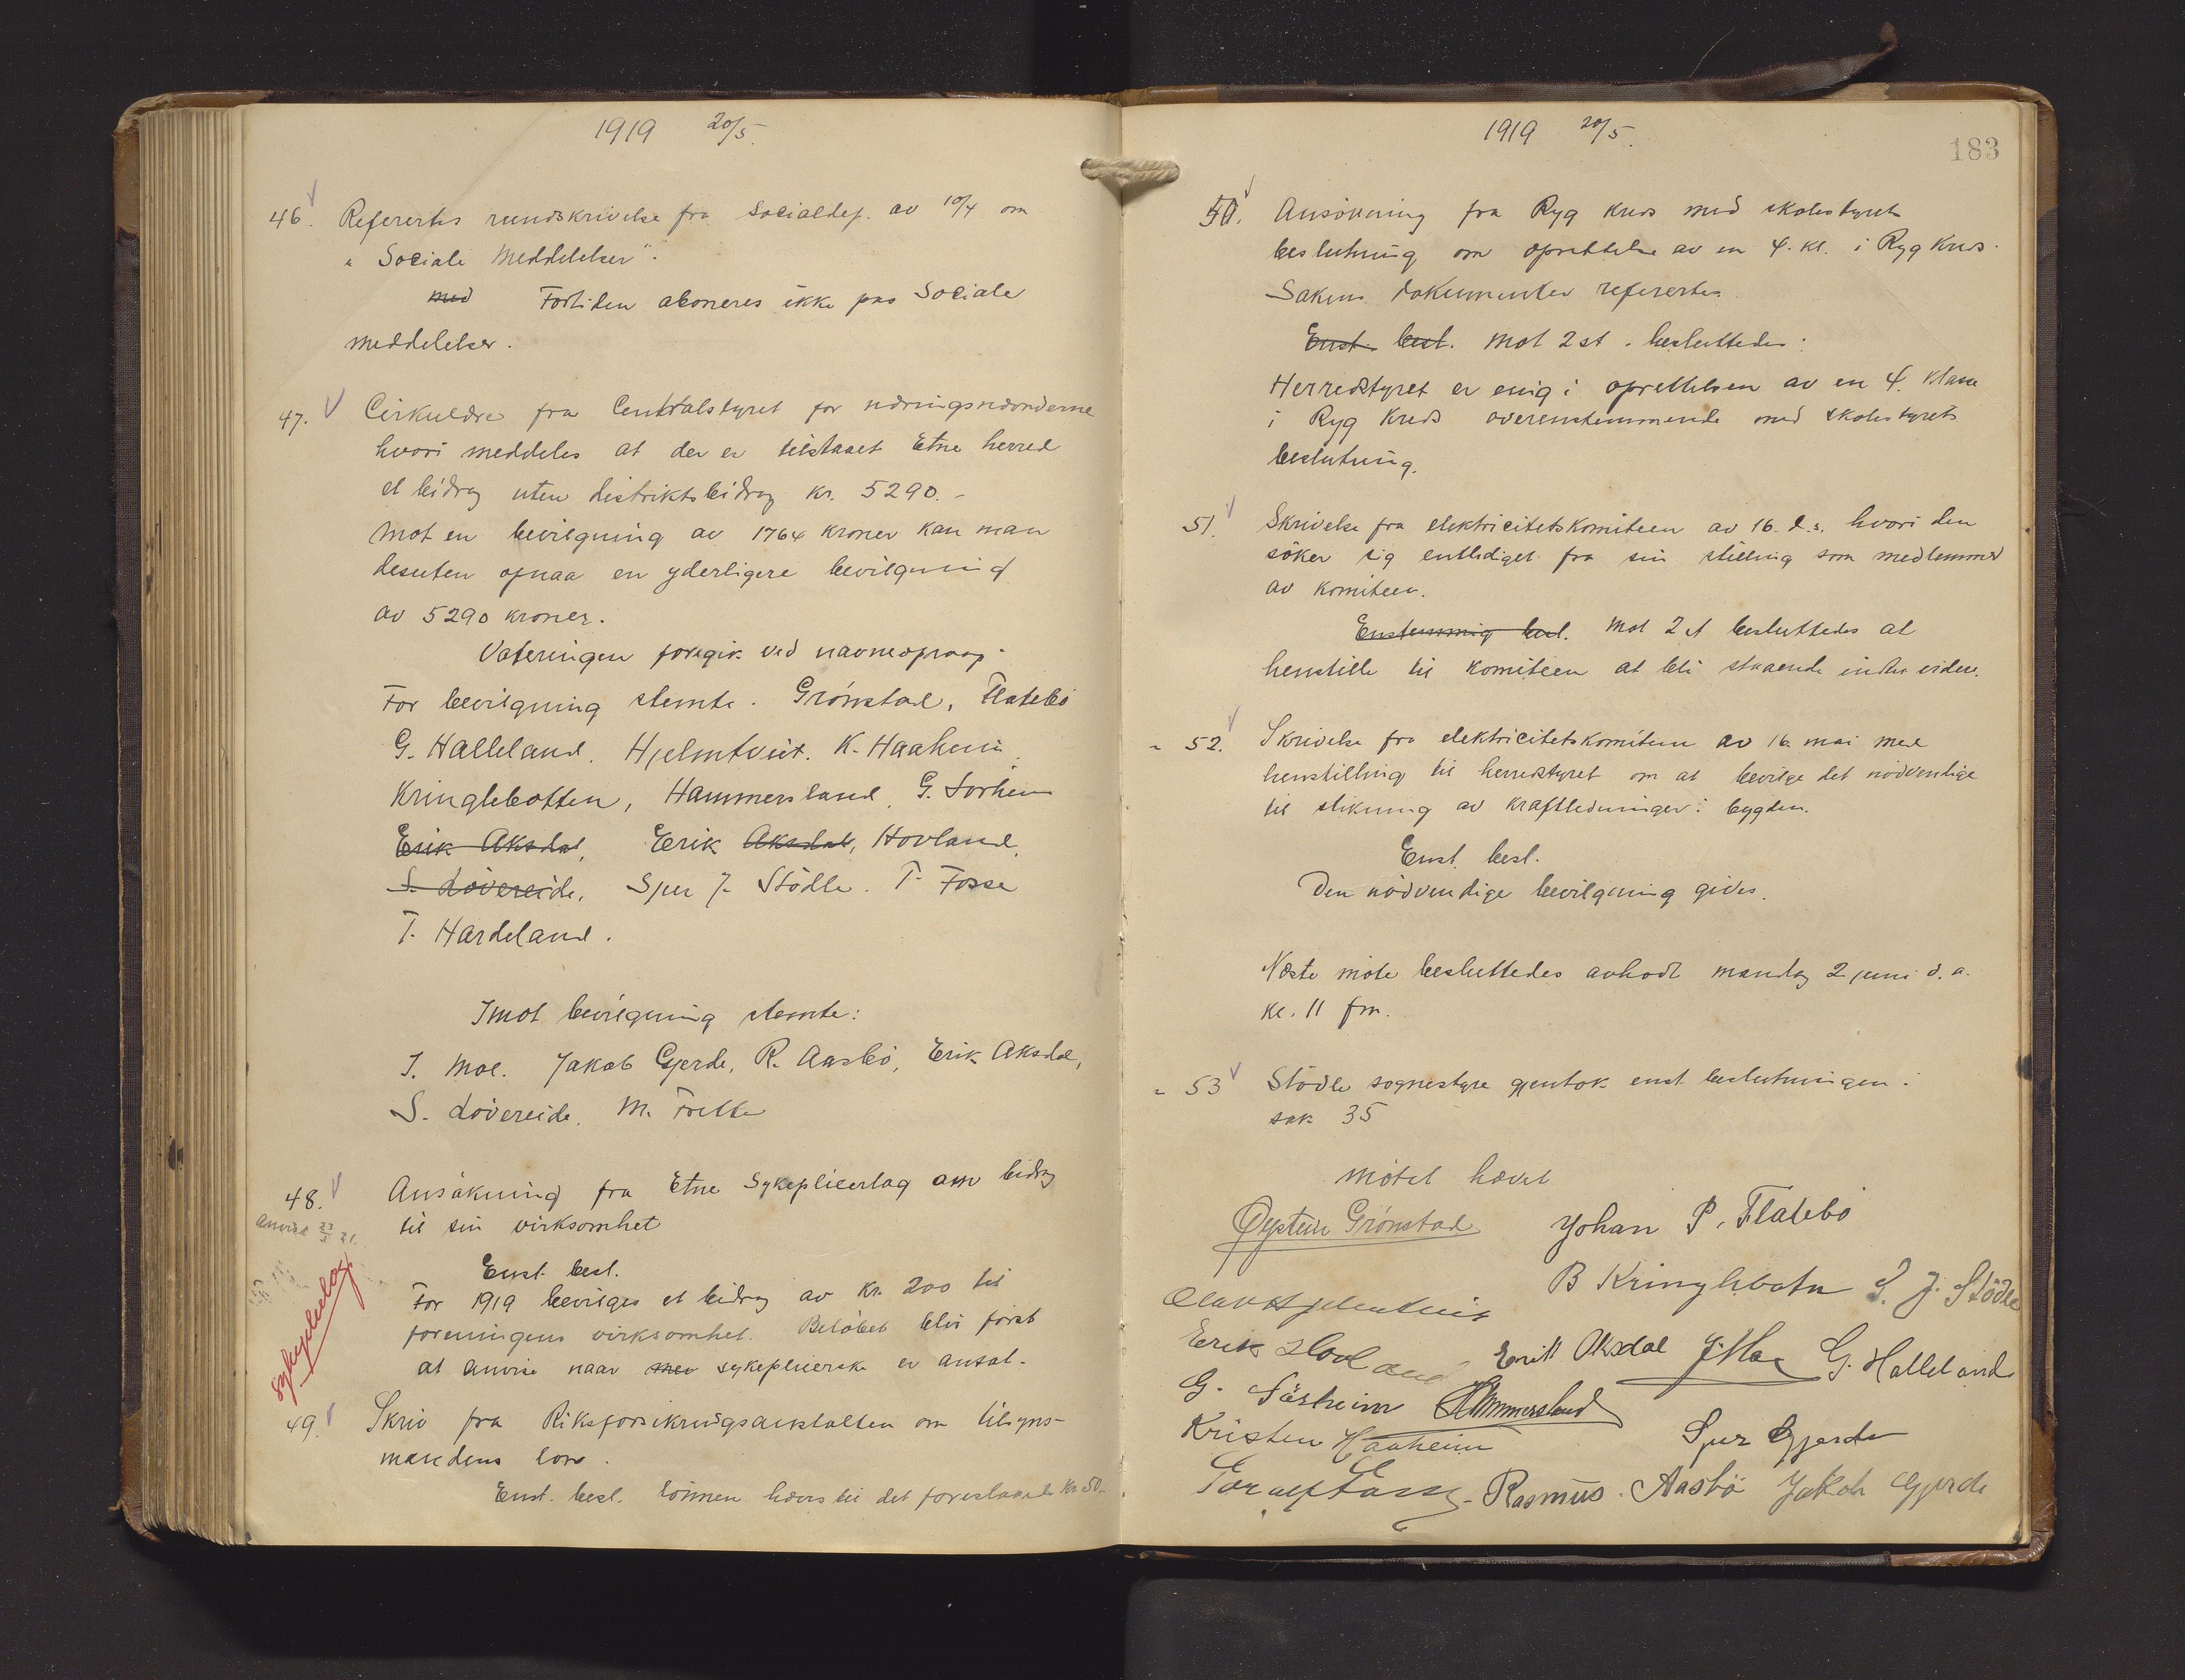 1919 20/5.
46. Refertes rundskrivelse fra Socialdep. av 10/4 om
"Sociale Meddelelser".
med Fortiden aboneres ikke paa Sociale
meddelelser.
47. Cirkulære fra Centralstyret for næringsnævnderne
hvori meddeles at der er tilstaaet Etne herred
et bidrag uten distriktsbidrag kr. 5290.-
Mot en bevilgning av 1764 kroner kan man
desuten opnaa en yderligere bevilgning
av 5290 kroner.
Voteringen foregik ved navneopraap.
For bevilgning stemte. Grönstad, Flatebö
G. Halleland. Hjelmtveit. K. Haaheim
Kringlebotten, Hammersland, G. Sörheim
Erik Aksdal, Erik Aksdal, Hovland,
S. Lövereide, Sjur J. Stödle. T. Fosse
T. Hardeland.
Imot bevilgning stemte:
J. Moe. Jakob Gjerde, R. Aasbö, Erik Aksdal,
S. Lövereide, M. Frette
48. Ansökning fra Etne Sykepleierlag om bidrag
Anvist 21.
til sin virksomhet
Enst. besl.
For 1919 bevilges et bidrag av kr. 200 til
foreningens virksomhet. Belöbet blir först
at anvise naar sykepleierske er ansat.
sykepleielag
49. Skriv fra Riksforsikringsanstalten om tilsyns-
mandens lön.
Enst. besl. Lönnen hæves til det foreslaaede kr 50.-
1919 20/5.
183
50. Ansökning fra Ryg kreds med skolestyrets
beslutning om oprettelse av en 4. kl. i Ryg kreds.
Sakens dokumenter refertes.
Enst. besl. Mot 2 st. besluttedes:
Herredstyret er enig i oprettelsen av en 4. klasse
i Ryg Kreds overenstemmende med skolestyrets
beslutning.
51. Skrivelse fra elektricitetskomiteen av 16. d.s. hvori den
söker sig entlediget fra sin stilling som medlemmer
av komiteen.
Enstemmig besl. Mot 2 st besluttedes at
henstille til komiteen at bli staaende indtil videre.
" 52. Skrivelse fra elektricitetskomiteen av 16. mai med
henstilling til herredstyret om at bevilge det nödvendige
til stikning av kraftledninger i bygden.
Enst. besl.
Den nödvendige bevilgning gives.
Næste möte besluttedes avholdt mandag 2 juni d.a.
kl. 11 fm.
" 53 Stödle sognestyre gjentok enst beslutningen i
sak 35
Mötet hævet
Øystein Grönstad Johan P. Flatebö
B Kringlebotn S. J. Stödle
Olav Hjelmtveit
Erik Hovland Erik Aksdal J. Moe G. Halleland
G. Sörheim Hammersland
Kristen Haaheim Sjur Gjerde
Toralf Fosse. Rasmus. Aasbö Jakob Gjerde